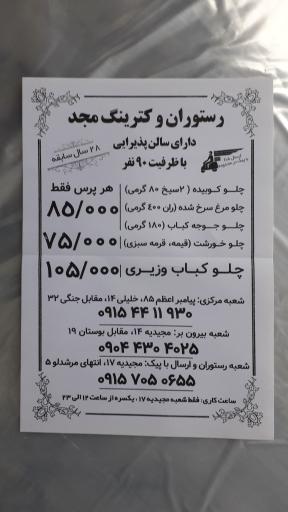 رستوران و کترینگ مجد
دارای سالن پذیرایی
با ظرفیت ۹۰ نفر
۲۸ سال سابقه
چلو کوبیده (۲سیخ ۸۰ گرمی)
چلو مرغ سرخ شده (ران ۴۰۰ گرمی)
چلو جوجه کباب (۱۸۰ گرمی)
هر پرس فقط
۸۵/۰۰۰
چلو خورشت (قیمه، قرمه سبزی)
۷۵/۰۰۰
چلو کباب وزیری
۱۰۵/۰۰۰
شعبه مرکزی: پیامبر اعظم ۸۵، خلیلی ۱۴، مقابل جنگی ۳۲
۰۹۱۵ ۴۴ ۱۱ ۹۳۰
شعبه بیرون بر: مجیدیه ۱۴، مقابل بوستان ۱۹
۰۹۰۴ ۴۳۰ ۴۰۲۵
شعبه رستوران و ارسال با پیک: مجیدیه ۱۷، انتهای مرشدلو ۵
۰۹۱۵ ۷۰۵ ۰۶۵۵
ساعت کاری: فقط شعبه مجیدیه ۱۷، یکسره از ساعت ۱۲ الی ۲۳